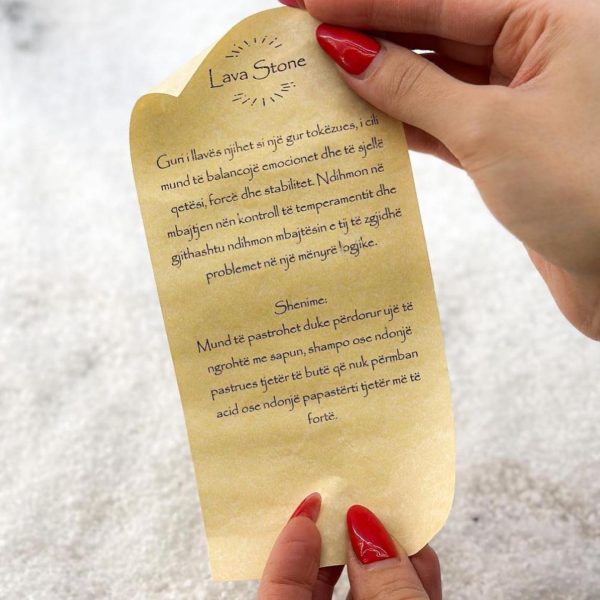 Lava Stone
Guri i llavës njihet si një gur tokëzues, i cili
mund të balancojë emocionet dhe të sjellë
qetësi, forcë dhe stabilitet. Ndihmon në
mbajtjen nën kontroll të temperamentit dhe
gjithashtu ndihmon mbajtësin e tij të zgjidhë
problemet në një mënyrë logjike.
Shenime:
Mund të pastrohet duke përdorur ujë të
ngrohtë me sapun, shampo ose ndonjë
pastrues tjetër të butë që nuk përmban
acid ose ndonjë papastërti tjetër më të
fortë.